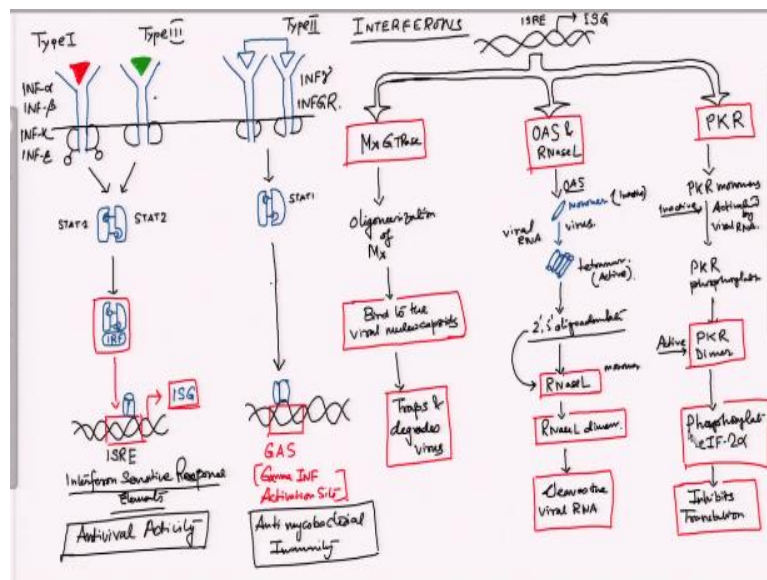 Type I
Type III
Type II
INTERFERONS
ISRE
ISG
INF-α
INF-β
INF-κ
INF-ε
INFγ
INFGR.
STAT1
STAT2
STAT1
IRF
ISG
ISRE
Interferon Sensitive Response
Elements
Antiviral Activity
GAS
[Gamma INF
Activation Site]
Anti mycobacterial
Immunity
Mx GTPase
Oligomerization
of
Mx
Bind to the
viral nucleocapsids
Traps &
degrades
virus
OAS &
RNaseL
OAS
monomer (Inactive)
viral
RNA
virus.
tetramer.
(Active).
2',5' oligoadenylate
RNaseL
monomer
RNaseL dimer.
Cleaves the
viral RNA
PKR
PKR monomers
Inactive
Activated
by
viral RNA.
PKR
phosphorylation
Active
PKR
Dimer
eIF-2α
Inhibits
Translation